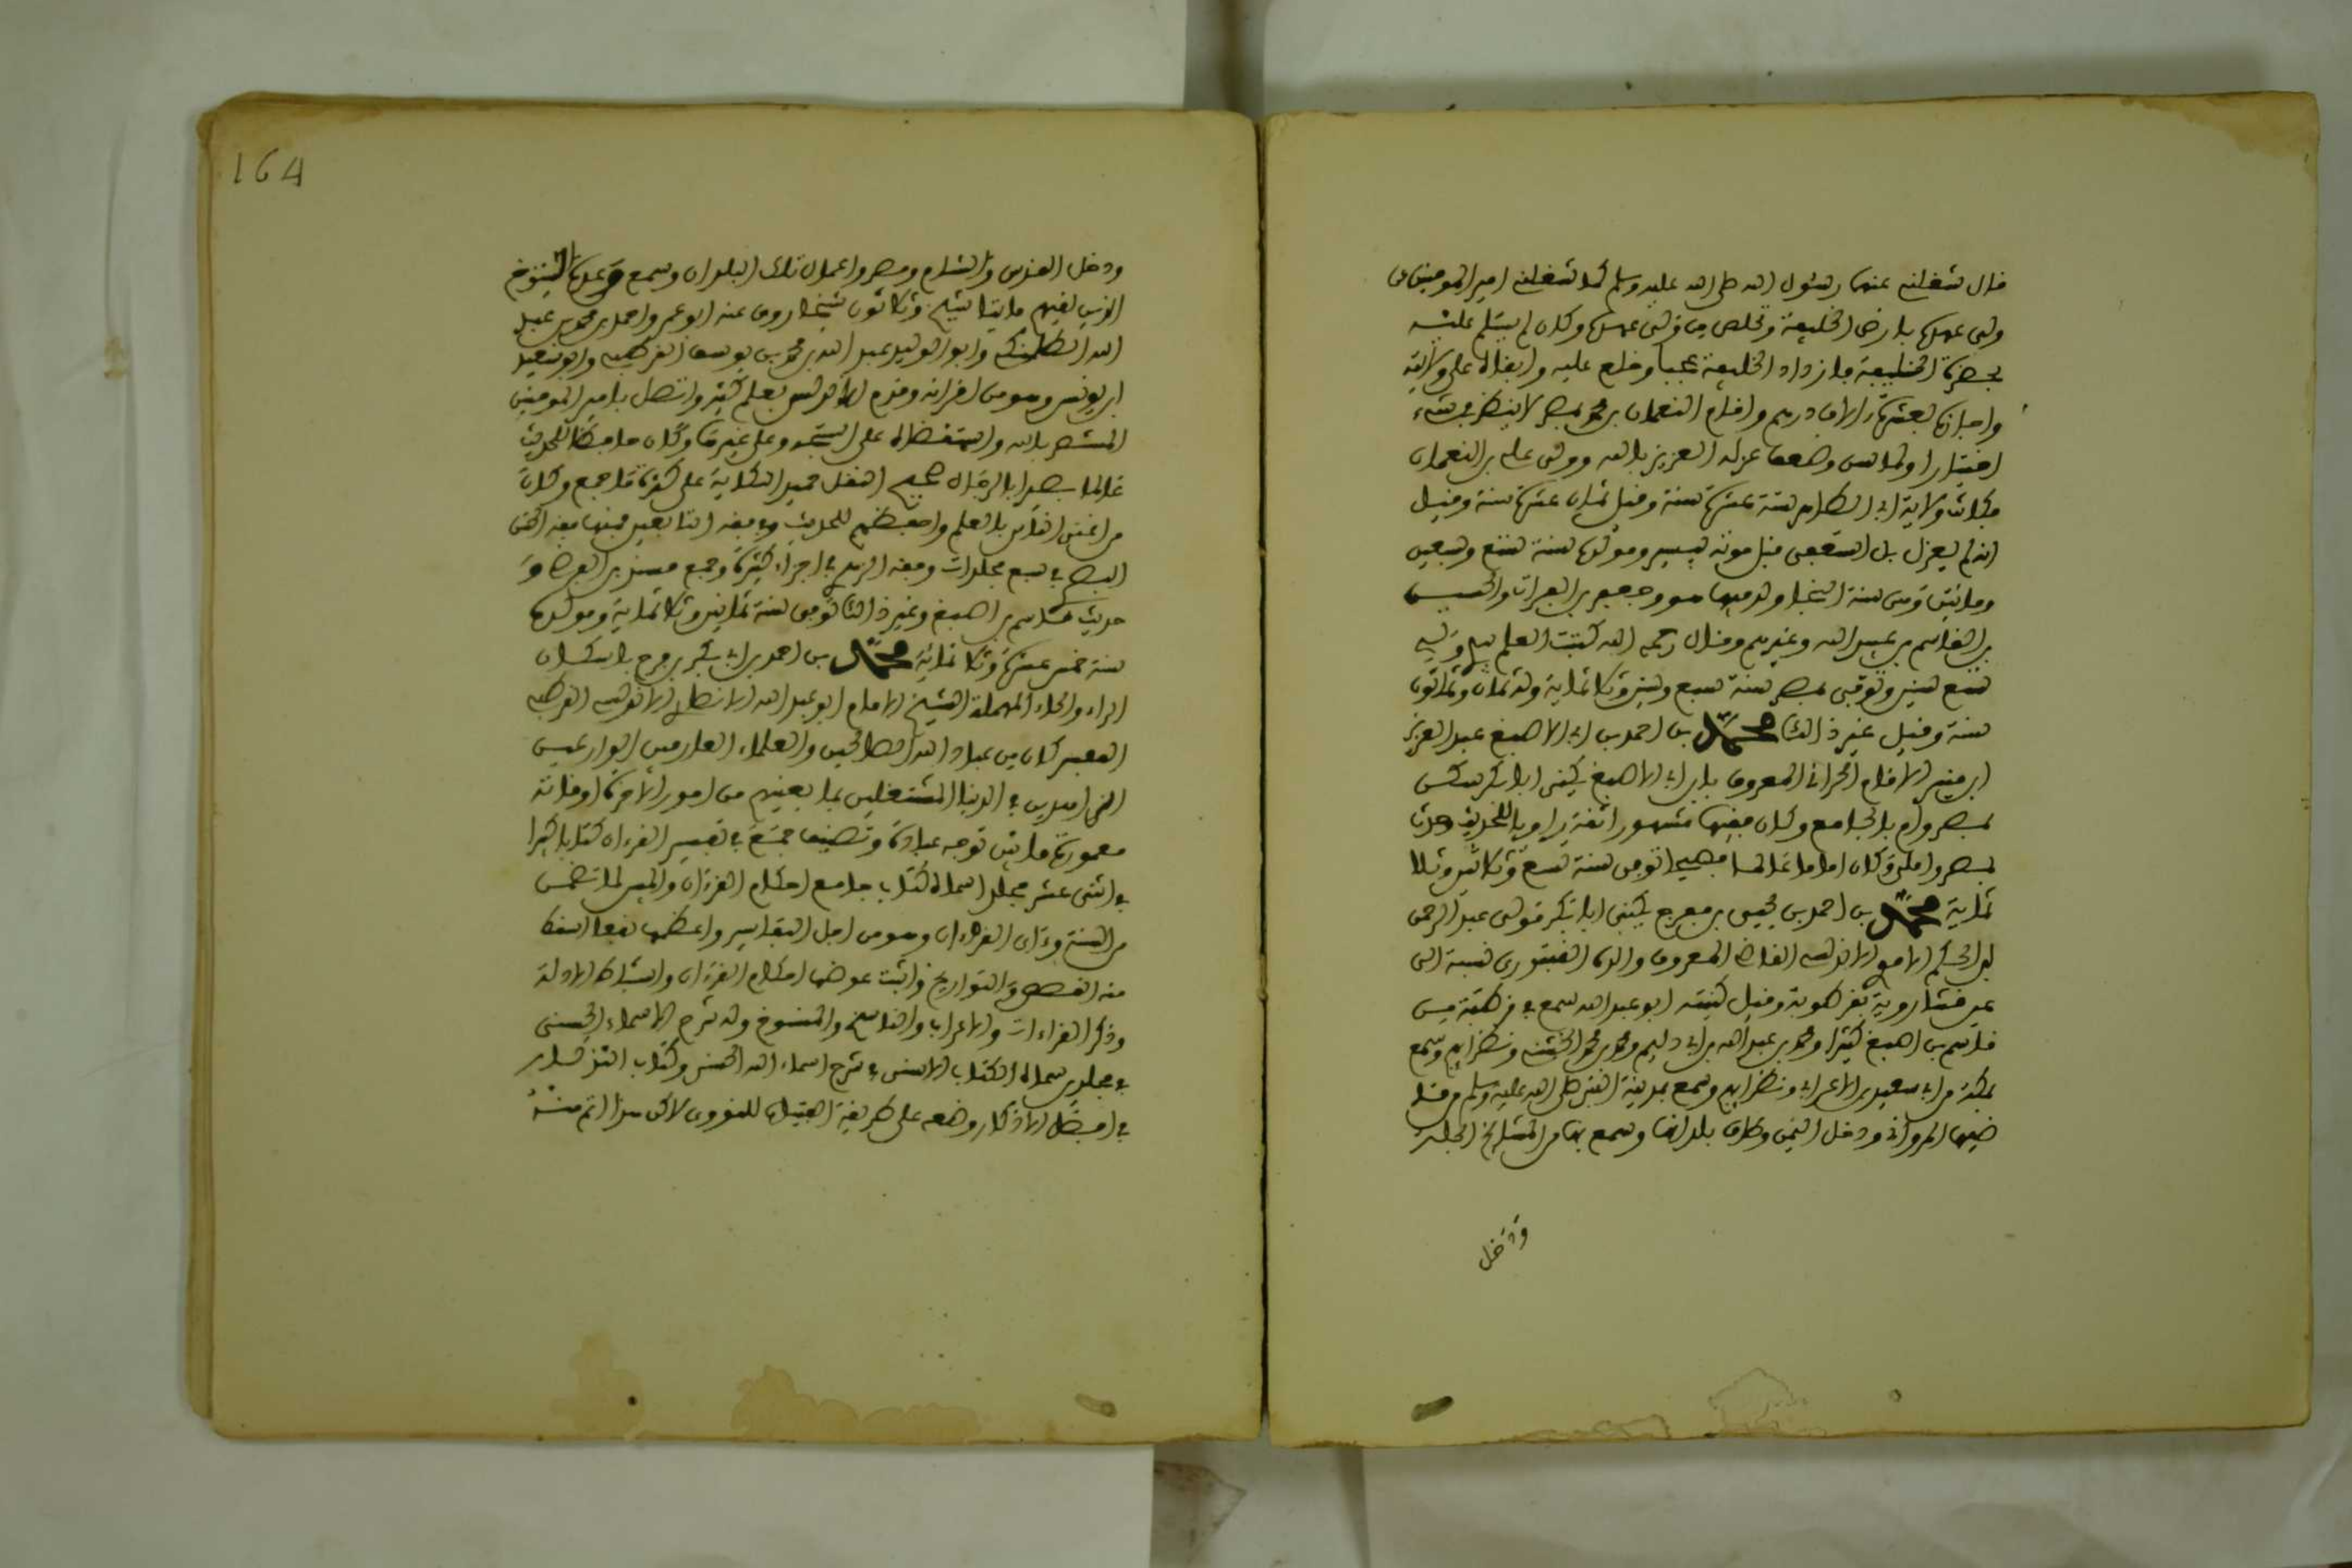 قال شغلني عنهما رسول الله صلى الله عليه وسلم كما شغلني امير المومنين عن
ولي عهده بارض الخليفة وتخلص من ولي عهده وكان لم يسلم عليه
بحضرة الخليفة فازداد الخليفة عجبا وخلع عليه وابقاه على ولايته
واجازه بعشرة الاف درهم واقام النعمان بن محمد بمصر لا ينظر في شيء
اختيارا ولما اسن وضعف عزله العزيز بالله وولى علي بن النعمان
فكانت ولاية ابي الطاهر ستة عشرة سنة وقيل ثمان عشرة سنة وقيل
انه لم يعزل بل استعفى قبل موته بيسير ومولده سنة تسع وسبعين
ومائتين
بن القاسم بن عبيد الله وغيرهم وقال رحمه الله كتبت العلم بيدي ولي
تسع سنين وتوفي بمصر سنة سبع وستين وثلاثماية وله ثمان وثمانون
سنة وقيل غير ذالك محمد بن احمد بن ابي الاصبغ عبد العزيز
ابن منير الامام الحراني المعروف بابن ابي الاصبغ يكنى ابا بكر سكن
بمصر وام بالجامع وكان فقيها مشهورا ثقة راويا للحديث وحدث
بمصر وكان اماما عالما فصيحا توفي سنة تسع وثلاثين وثلا
ثماية محمد بن احمد بن يحيى بن مفرج يكنى ابا بكر مولى عبد الرحمن
بن الحكم الاموي الاندلسي القاضي المعروف والده القبتوري نسبة الى
عين قنت اورية بقرطبة وقيل كنيته ابو عبد الله سمع في قرطبة من
قاسم بن اصبغ كثيرا ومحمد بن عبد الله بن ابي دليم ومحمد بن محمد الخشني ونظرايهم وسمع
بمكة من ابي سعيد بن الاعرابي ونظرايهم وسمع بمدينة النبي صلى الله عليه وسلم من قا
ضيها المرواني ودخل اليمن وطاف بلدانها وسمع بها من المشايخ الجلة
ودخل
164
ودخل القدس والشام ومصر واعمال تلك البلدان وسمع وعدة الشيوخ
الذين لقيهم مايتا شيخ وثلاثون شيخا روى عنه ابو عمر واحمد بن محمد بن عبد
الله الطلمنكي وابو الوليد عبد الله بن محمد بن يوسف القرطبي وابو سعيد
ابن يونس وهو من اقرانه وقدم الاندلس بعلم كثير واتصل بامير المومنين
المستنصر بالله واستقضاه على استجة وعلى غيرها وكان حافظا للحديث
عالما بصيرا بالرجال صحيح النقل حميد الكتابة على كثرة ما جمع وكان
من اغنى الناس بالعلم واحفظهم للحديث وفي فقه التابعين منها فقه الحسن
البصري في سبع مجلدات وفقه الزهري في اجزاء كثيرة وجمع مسند بن الفرضي و
حديث قاسم بن اصبغ وغير ذالك توفي سنة ثمانين وثلاثماية ومولده
سنة خمس عشرة وثلاثماية محمد بن احمد بن ابي بكر بن فرح باسكان
الراء والحاء المهملة الشيخ الامام ابو عبد الله الانصاري الاندلسي القرطبي
المفسر كان من عباد الله الصالحين والعلماء العارفين الوارعين
الزاهدين في الدنيا المشتغلين بما يعنيهم من امور الاخرة اوقاته
معمورة ما بين توجه عبادة وتصنيف جمع في تفسير القرءان كتابا كبيرا
في اثنى عشر مجلد اسماه كتاب جامع احكام القرءان والمبين لما تضمن
من السنة وءاي القرءان وهو من اجل التفاسير واعظمها نفعا اسقط
منه القصص والتواريخ واثبت عوضها احكام القرءان واستنباط الادلة
وذكر القراءات والاعراب والناسخ والمنسوخ وله شرح الاسماء الحسنى
في مجلدين سماه الكتاب الاسنى في شرح اسماء الله الحسنى وكتاب التذكار
في افضل الاذكار وضعه على طريقة التبيان للنووي لاكن هذا اتم منه